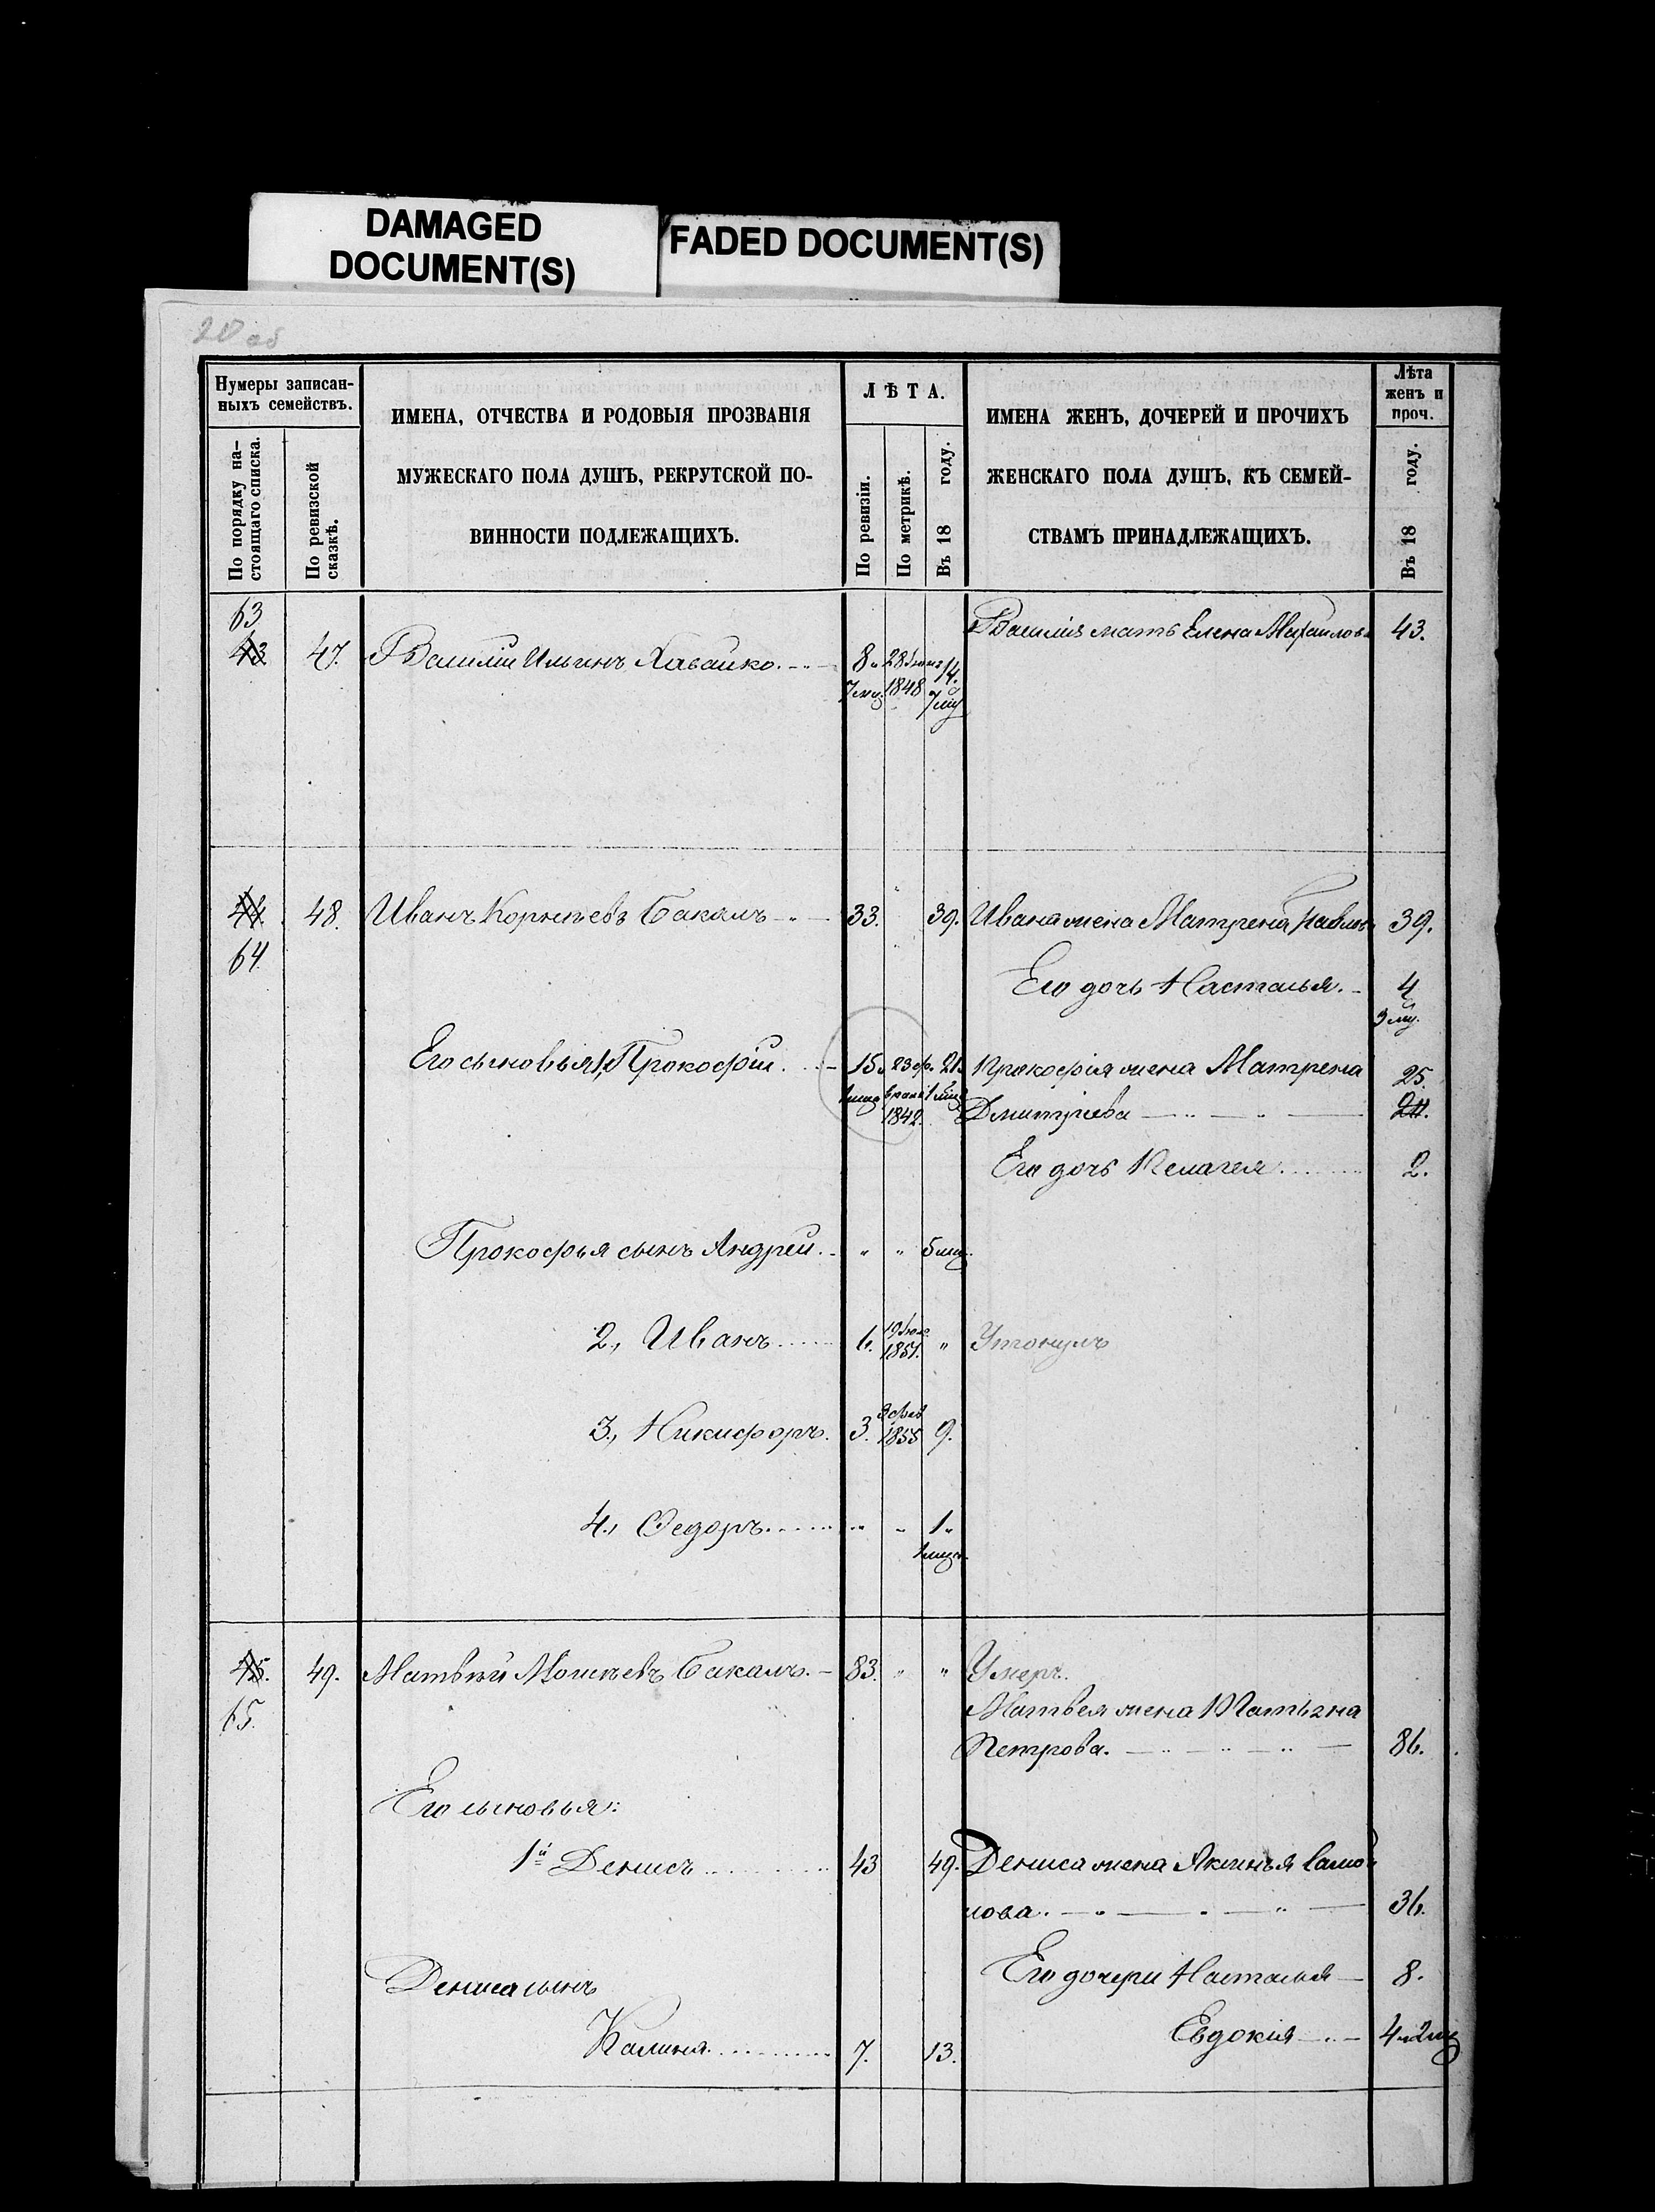 DAMAGED
DOCUMENT(S)
FADED DOCUMENT(S)
20 об
Нумеры записан-
ныхъ семействъ.
По порядку на-
стоящаго списка.
По ревизской
сказкѣ.
ИМЕНА, ОТЧЕСТВА И РОДОВЫЯ ПРОЗВАНІЯ
МУЖЕСКАГО ПОЛА ДУШЪ, РЕКРУТСКОЙ ПО-
ВИННОСТИ ПОДЛЕЖАЩИХЪ.
ЛѢТА.
По ревизіи.
По метрикѣ.
Въ 18 году.
ИМЕНА ЖЕНЪ, ДОЧЕРЕЙ И ПРОЧИХЪ
ЖЕНСКАГО ПОЛА ДУШЪ, КЪ СЕМЕЙ-
СТВАМЪ ПРИНАДЛЕЖАЩИХЪ.
Лѣта
женъ и
проч.
Въ 18 году.
63
43 47. Василій Ильинъ 8 и 28 14. Василія мать Елена Михаилов 43.
7 мц. 1848 и
7 мц
44. 48. Иванъ Корнѣевъ Бакалъ 33. 39. Ивана жена Матрена Павлов 39.
64.
Его дочь Настасья. 4
и
3 мц.
Его сыновья 1, Прокофій 15. 23 ф. 21. Прокофія жена Матрена 25.
враля
1842. Дмитріева 24.
Его дочь Пелагея 2.
Прокофья сынъ Андрей. " " 5 мц.
2., Иванъ 6. 19 1851. " Утонулъ
3., Никифоръ. 3. 3 фев 1855 9.
4., Федоръ " " 1.
45. 49. Матвѣй Бакалъ. 83. " " Умеръ.
65. Матвея жена Татьяна
Петрова. 86.
Его сыновья:
1й Денисъ 43 49. Дениса жена Акинья Само
лова. 36.
Его дочери Настасья 8.
Дениса сынъ
Евдокія 4 и 2 мц
Калина 7. 13.